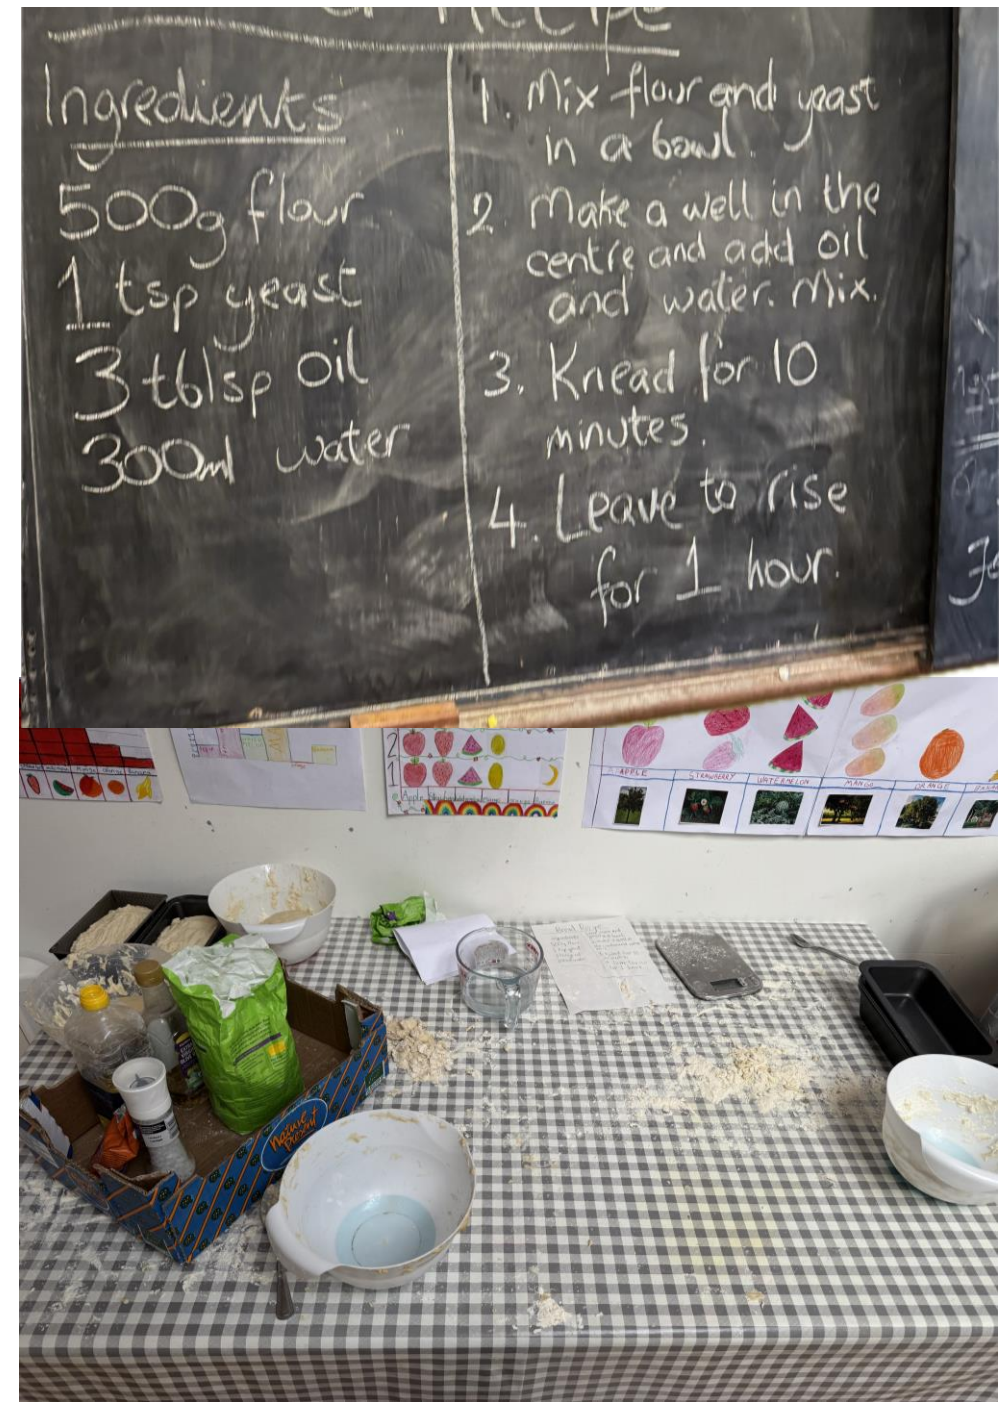 Recipe
Ingredients
500g flour
1 tsp yeast
3 tblsp oil
300ml water
1. Mix flour and yeast
in a bowl.
2. Make a well in the
centre and add oil
and water. Mix.
3. Knead for 10
minutes.
4. Leave to rise
for 1 hour.
2
1
Apple
APPLE
STRAWBERRY
WATERMELON
MANGO
ORANGE
Nature's
Present